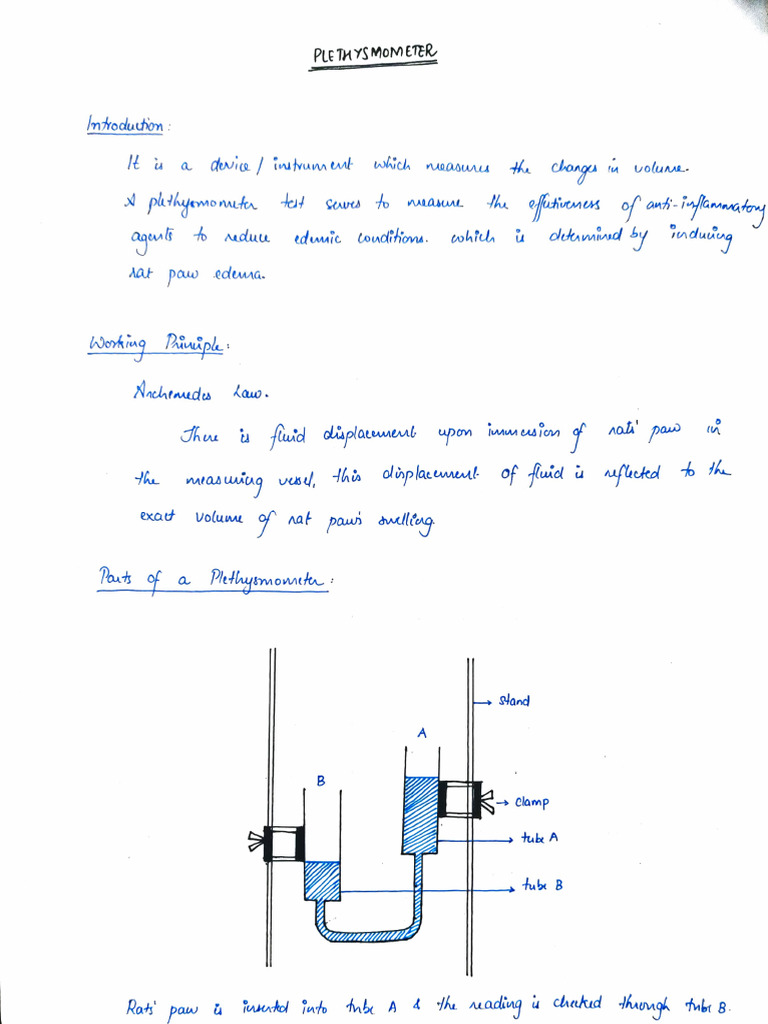 PLETHYSMOMETER
Introduction:
It is a device / instrument which measures the changes in volume.
A plethysmometer test serves to measure the effetiveness of anti-inflammatory
agents to reduce edemic conditions. which is determined by inducing
rat paw edema.
Working Principle:
Archemedes Law.
There is fluid displacement upon immersion of rats' paw in
the measuring vessel, this displacement of fluid is reflected to the
exact volume of rat paw's swelling.
Parts of a Plethysmometer:
stand
A
B
clamp
tube A
tube B
Rats' paw is inserted into tube A & the reading is checked through tube B.